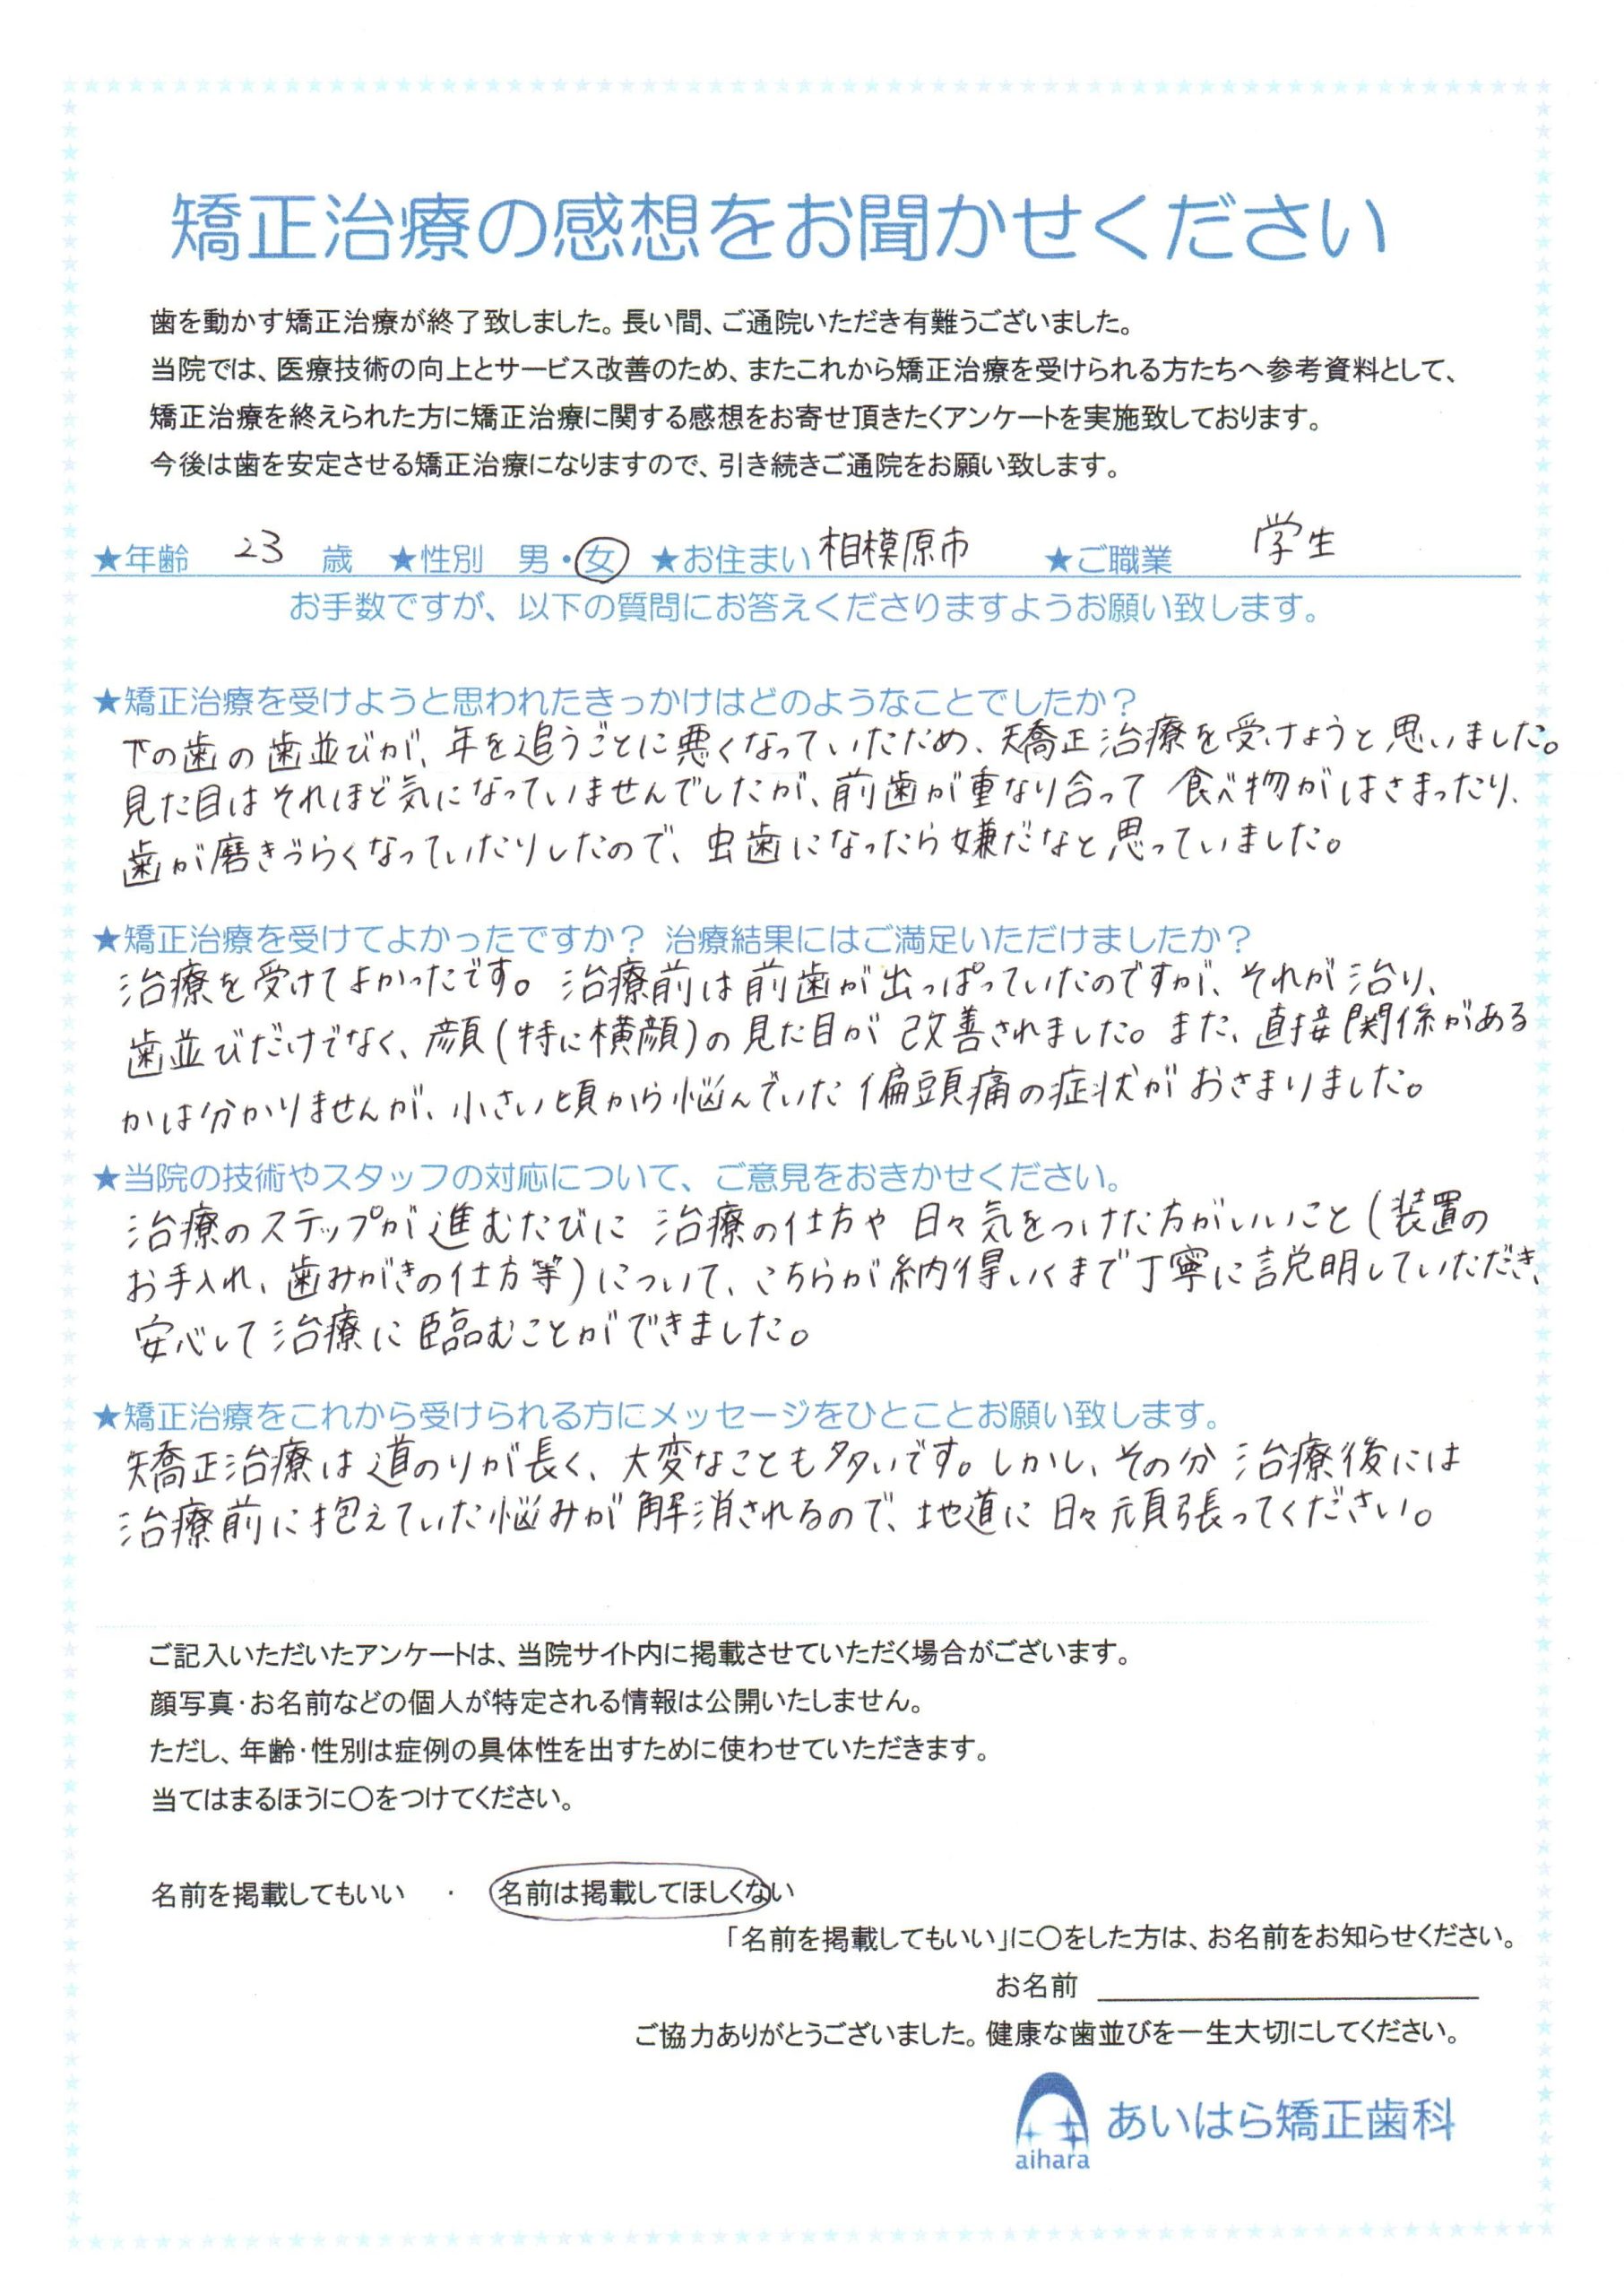 矯正治療の感想をお聞かせください
歯を動かす矯正治療が終了致しました。長い間、ご通院いただき有難うございました。
当院では、医療技術の向上とサービス改善のため、またこれから矯正治療を受けられる方たちへ参考資料として、
矯正治療を終えられた方に矯正治療に関する感想をお寄せ頂きたくアンケートを実施致しております。
今後は歯を安定させる矯正治療になりますので、引き続きご通院をお願い致します。
★年齢 23 歳 ★性別 男・女 ★お住まい 相模原市 ★ご職業 学生
お手数ですが、以下の質問にお答えくださりますようお願い致します。
★矯正治療を受けようと思われたきっかけはどのようなことでしたか？
下の歯の歯並びが、年を追うごとに悪くなっていただめ、矯正治療を受けようと思いました。
見た目はそれほど気になっていませんでしたが、前歯が重なり合って食べ物がはさまったり、
歯が磨きづらくなっていたりしたので、虫歯になったら嫌だなと思っていました。
★矯正治療を受けてよかったですか？ 治療結果にはご満足いただけましたか？
治療を受けてよかったです。治療前は前歯が出っぱっていたのですが、それが治り、
歯並びだけでなく、顔(特に横顔)の見た目が改善されました。また、直接関係がある
かは分かりませんが、小さい頃から悩んでいた偏頭痛の症状がおさまりました。
★当院の技術やスタッフの対応について、ご意見をおきかせください。
治療のステップが進むたびに治療の仕方や日々気をつけた方がいいこと(装置の
お手入れ、歯みがきの仕方等)について、こちらが納得いくまで丁寧に説明していただき、
安心して治療に臨むことができました。
★矯正治療をこれから受けられる方にメッセージをひとことお願い致します。
矯正治療は道のりが長く、大変なことも多いです。しかし、その分治療後には
治療前に抱えていた悩みが解消されるので、地道に日々頑張ってください。
ご記入いただいたアンケートは、当院サイト内に掲載させていただく場合がございます。
顔写真・お名前などの個人が特定される情報は公開いたしません。
ただし、年齢・性別は症例の具体性を出すために使わせていただきます。
当てはまるほうに〇をつけてください。
名前を掲載してもいい ・ 名前は掲載してほしくない
「名前を掲載してもいい」に〇をした方は、お名前をお知らせください。
お名前
ご協力ありがとうございました。健康な歯並びを一生大切にしてください。
あいはら矯正歯科
aihara